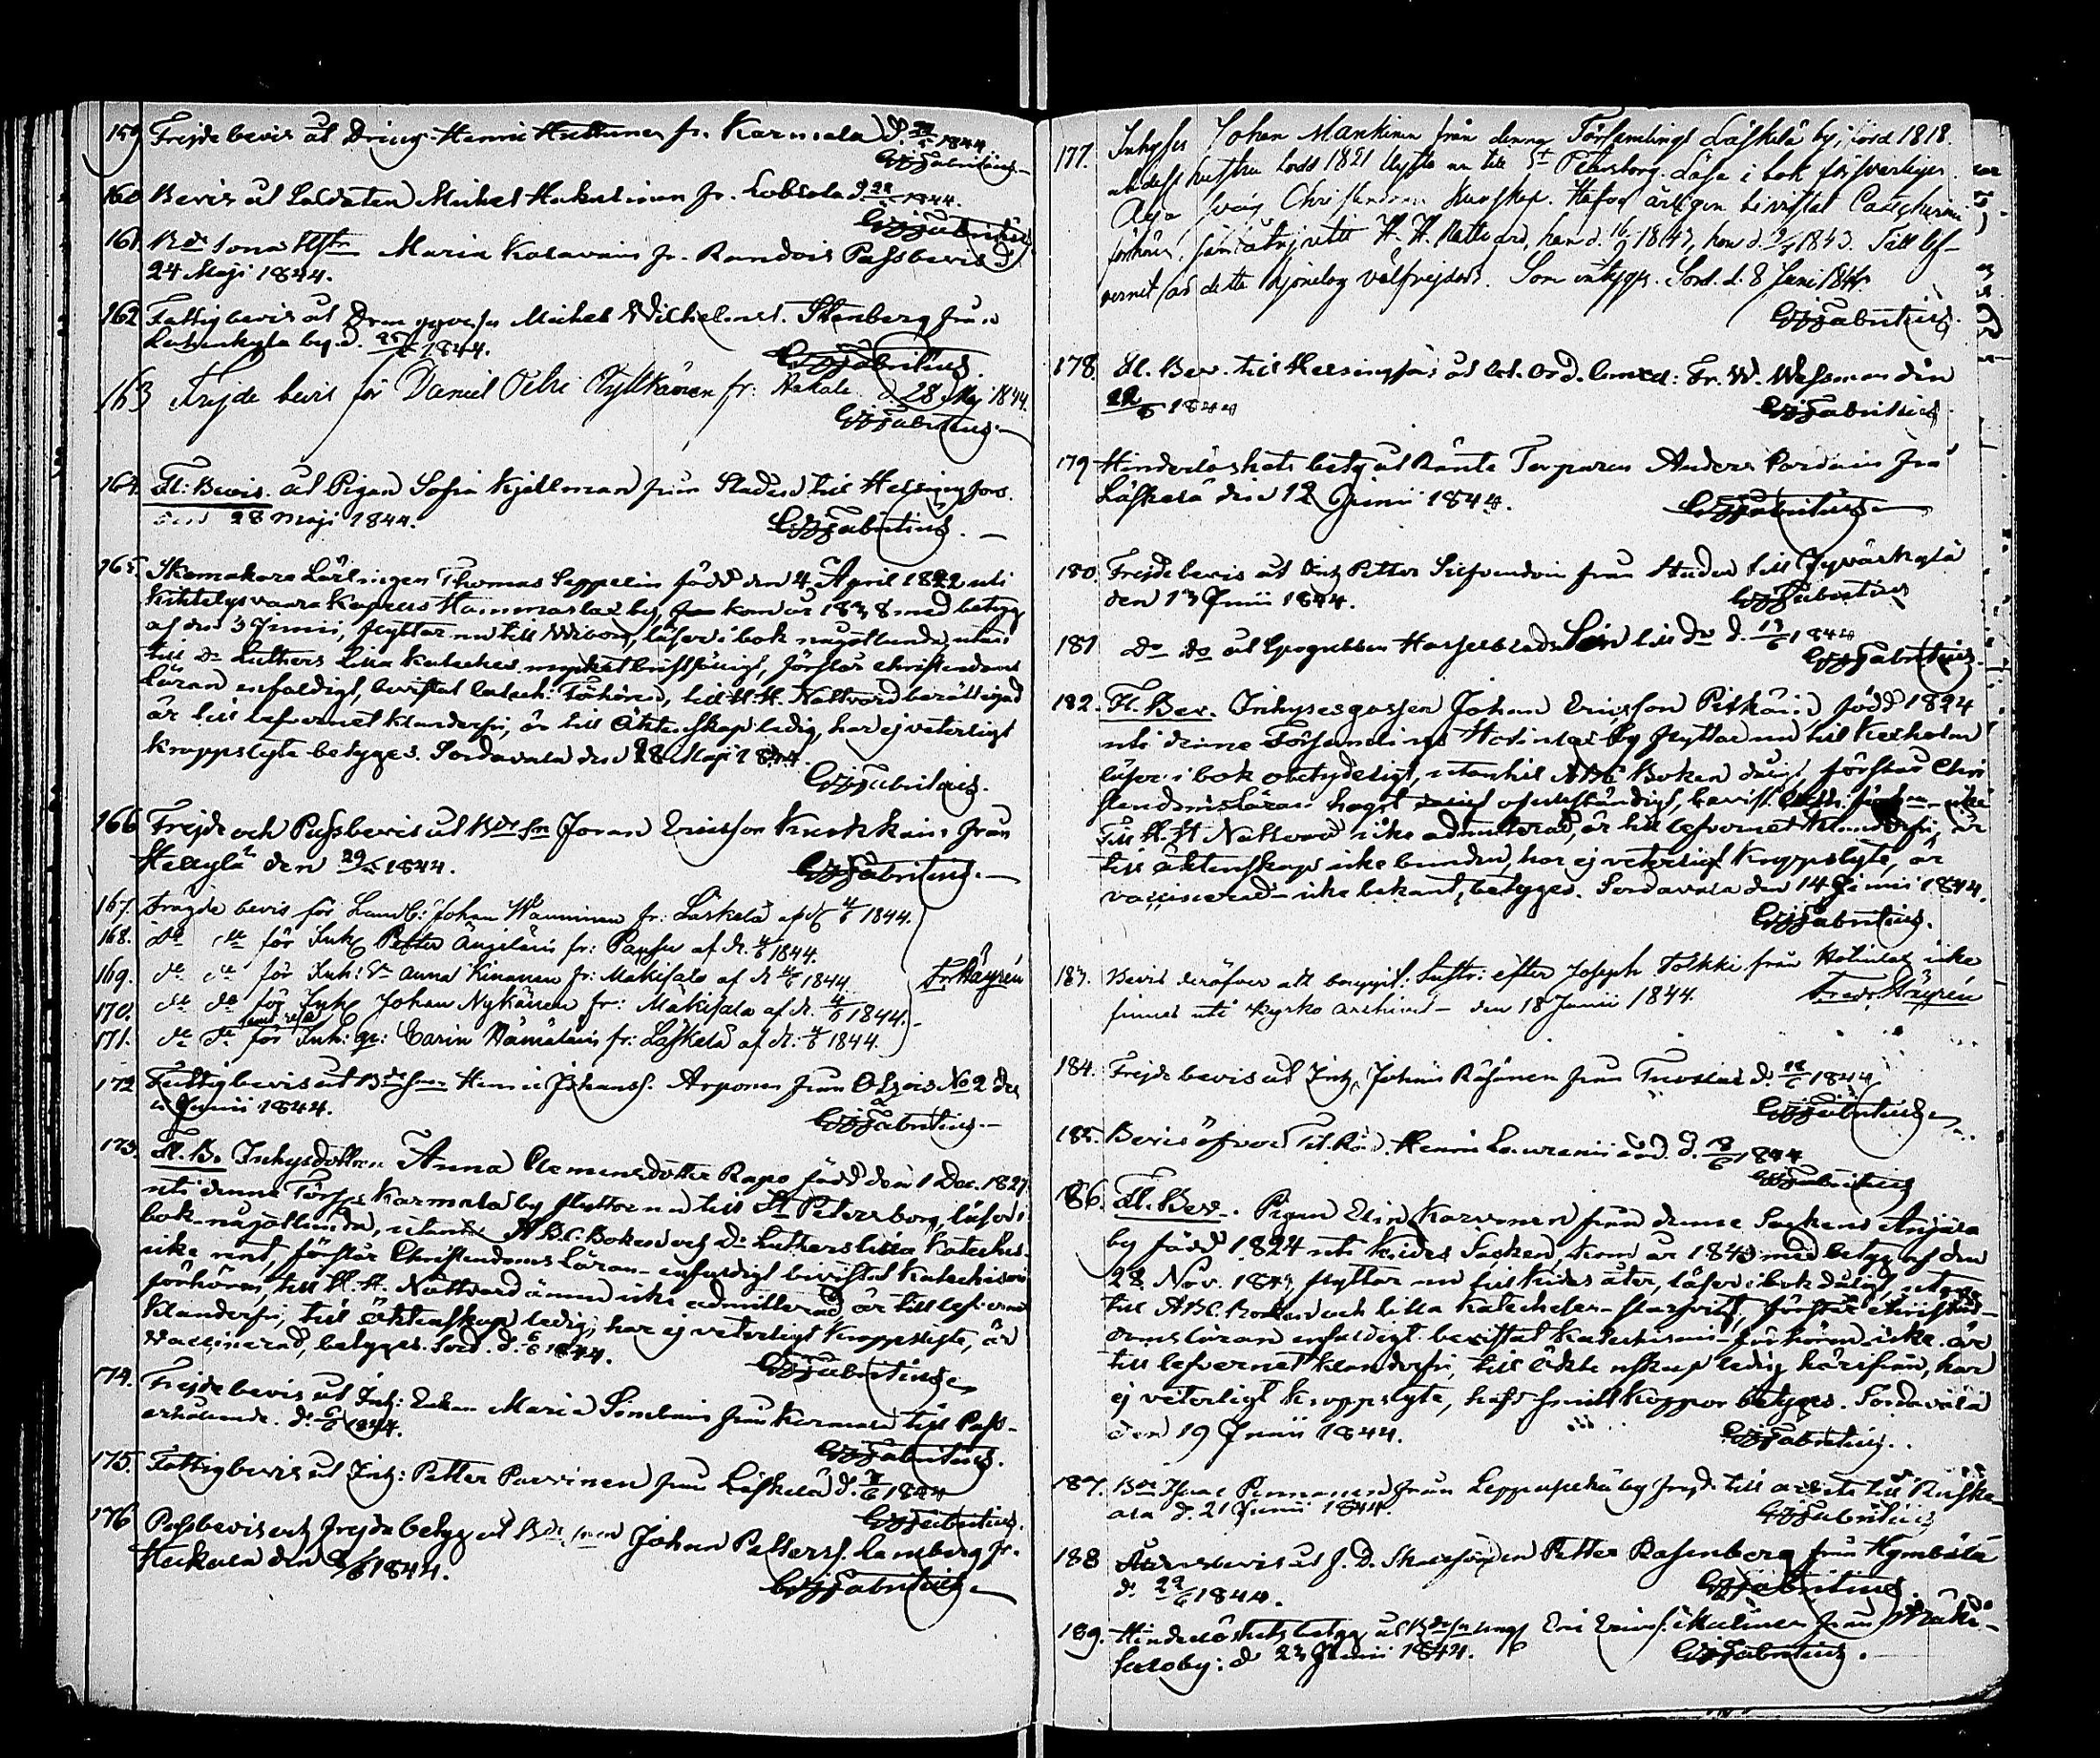 159 Frejdebevis åt Dräng Henric Huttunen fr. Karmala d. 1844.
GWFabritius
160. Bevis åt Soldaten Michel Hakulinen fr. d. 1844.
GWFabritius
161. Maria Kolavain fr. Randois Passbevis d.
24 Maji 1844.
162 Fattigbevis åt Michel Wilhelmss. Stenberg från
by. d. 25/5 1844.
GWFabritius.
163 Frejde bevis för Daniel Petri fr: d. 28 Maj 1844.
GWFabritius.
164. Fl: Bevis. åt Pigan Sofia Kjellman från Staden till Helsingfors.
den 28 Maji 1844.
GWFabritius.
165. Skomakare Lärlingen Thomas Seppelin född den 4 April 1822 uti
Kihtelysvaara Kapells Hammaslax by, kom år 1838 med betyg
af den 3 Junii, flyttar nu till Wiborg, läser i bok någorlunda, utan
till Dr Luthers lilla Kateches mycket bristfälligt, förstår Christendoms
läran enfaldigt, bevistat Catech: Förhören, till H. H. Nattvard berättigad
är till lefvernet klanderfri, är till Äktenskap ledig, har ej veterligt
kroppslyte betyges. Sordavala den 28 Maji 1844.
GWFabritius.
166 Frejd och Passbevis åt Johan Ericsson från
Helylä den 29/5 1844.
GWFabritius.
167. Fragde bevis för Landb: Johan Wänninen fr: Läskelä af d. 4/6 1844.
168. do do för Inh. Petter fr: af d. 4/6 1844.
169. do do för Inh: Anna Kinanen fr: Mäkisalo af d. 4/6 1844.
Fr: Häyrén
170. do do för Inh. Johan Nykänen fr: Mäkisalo af d. 4/6 1844.
171. do do för Inh: Carin Hämäläin fr: Läskelä af d: 4/6 1844.
172 Fattigbevis åt Henric Johanss. Arponen från Otsois No 2 den
Junii 1844.
GWFabritius.
173. Fl. B. Inhysdottren Anna Clemensdotter Rapo född den 1 Dec. 1827
uti denne Förs: Karmala by flyttar nu till St Petersborg, läser i
bok någorlunda, utantill A.B.C. Boken och Dr Luthers lilla Kateches
icke rent, förstår Christendoms Läran enfaldigt bevistat Katechismi
förhören, till H. H. Nattvard ännu icke admitterad är till lefvernet
klanderfri, till äktenskap ledig, har ej veterligt kroppslyte, är
vaccinerad, betyges. Sord. d. 6/6 1844.
GWFabritius.
174. Frejdebevis åt Inh: Enkan Maria från Karmala till Pass-
erhållande. d. 6/6 1844.
GWFabritius.
175. Fattigbevis åt Inh: Petter Parvinen från Läskelä d. 7/6 1844
GWFabritius.
176 Passbevis och frejdebetyg åt Johan Petterss. Lansberg fr.
den 8/6 1844.
GWFabritius.
177. Inhyses Johan Mankinen från denna Församlings Läskelä by, född 1818.
och dess hustru född 1821 flytta nu till St Petersborg. Läsa i bok försvarligen.
Äga svag Christendoms Kunskap. Hafva årligen bevistat Catechismi
förhören, samt åtnjutit H. H. Nattvard, han d. 16/9 1843, hon d. 1843. Till lef-
vernet äro detta hjonelag välfrejdade. Som intygas. Sord. d. 8 Juni 1844
GWFabritius.
178. Fl. Bev. till Helsingfors åt Fr. W. Wessman den
22/6 1844
GWFabritius
179 Hinderlöshets betyg åt Torparen Anders från
Läskelä den 12 Junii 1844.
GWFabritius
180. Frejdebevis åt Inh Petter från Staden till Jyväskylä
den 13 Junii 1844.
GWFabritius
181 do do åt Hasselbladen till do d. 13/6 1844
GWFabritius.
182. Fl. Bev. Inhysesgossen Johan Ericsson Pitkäin född 1824
uti denne Församlings by flyttar nu till Kexholm
läser i bok otydeligt, utantill ABC Boken dåligt, förstår Chri
stendomsläran högst ofullständigt, bevist. Catech. icke
till H. H. Nattvard icke admitterad, är till lefvernet klanderfri, är
till äktenskap icke bunden, har ej veterligt Kroppslyte, är
vaccinerad icke bekant, betyges. Sordavala den 14 Junii 1844.
GWFabritius.
183. Bevis deröfver att efter Joseph Tolkki från icke
finnes uti Kyrko archivet – den 18 Junii 1844.
Fredr. Häyrén
184. Frejdebevis åt Inh, Johan Räsänen från Tuoslax d. 18/6 1844
GWFabritius
185. Bevis öfver Tit. Råd. Henric Laurenii död. d. 1844
GWFabritius
186. Fl. Bev. Pigan Elin Karvonen från denne Sockens Anjala
by född 1824 uti Kides Socken, kom år 1843 med betyg af den
28 Nov. 1843, flyttar nu till Kides åter, läser i bok dåligt, utan
till ABC Boken och lilla Katechesen förstår Christen-
domsläran enfaldigt bevistat Katechismi förhören icke. är
till lefvernet klanderfri, till äktenskap ledig härifrån, har
ej veterligt kroppslyte, haft Koppor betyges. Sordavala
den 19 Junii 1844.
GWFabritius.
187. Isaac Pennanen från by frejd. till arbete till
d. 21 Junii 1844.
GWFabritius
188 åt Petter Rosenberg från Kymölä
d. 22/6 1844.
GWFabritius.
189. Hinderlöshetsbetyg åt Eric Ericss. från Mäki-
salo by: d 23 Junii 1844.
GWFabritius.